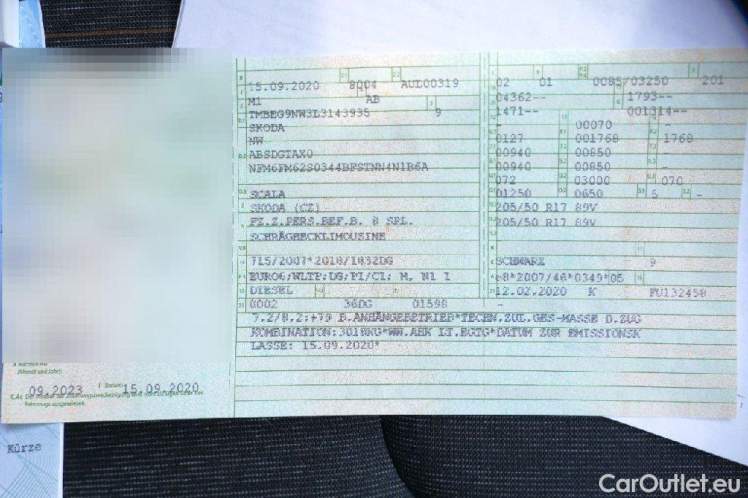 15.09.2020 8004 AUL00319
M1 AB
TMBEG9NW3L3143935 9
SKODA
NW
ABSDGTAX0
NFM6FM62S0344BFSTNN4N1B6A
SCALA
SKODA (CZ)
FZ.Z.PERS.BEF.B. 8 SPL.
SCHRÄGHECKLIMOUSINE
715/2007*2018/1832DG
EURO6;WLTP;DG;PI/CI; M, N1 I
DIESEL
0002 36DG 01598
02 01 0085/03250 201
04362-- 1793--
1471-- 001314--
- 00070 -
0127 001768 1768
00940 00850 -
00940 00850 -
072 03000 070
01250 0650 5 -
205/50 R17 89V
205/50 R17 89V
SCHWARZ 9
e8*2007/46*0349*05
12.02.2020 K FU132458
-
7.2/8.2:+79 B.ANHÄNGEBETRIEB*TECHN.ZUL.GES-MASSE D.ZUG
KOMBINATION:3018KG*WW.AHK LT.EGTG*DATUM ZUR EMISSIONSK
LASSE: 15.09.2020*
(Monat und Jahr)
09.2023 I Datum: 15.09.2020
Kürze
CarOutlet.eu